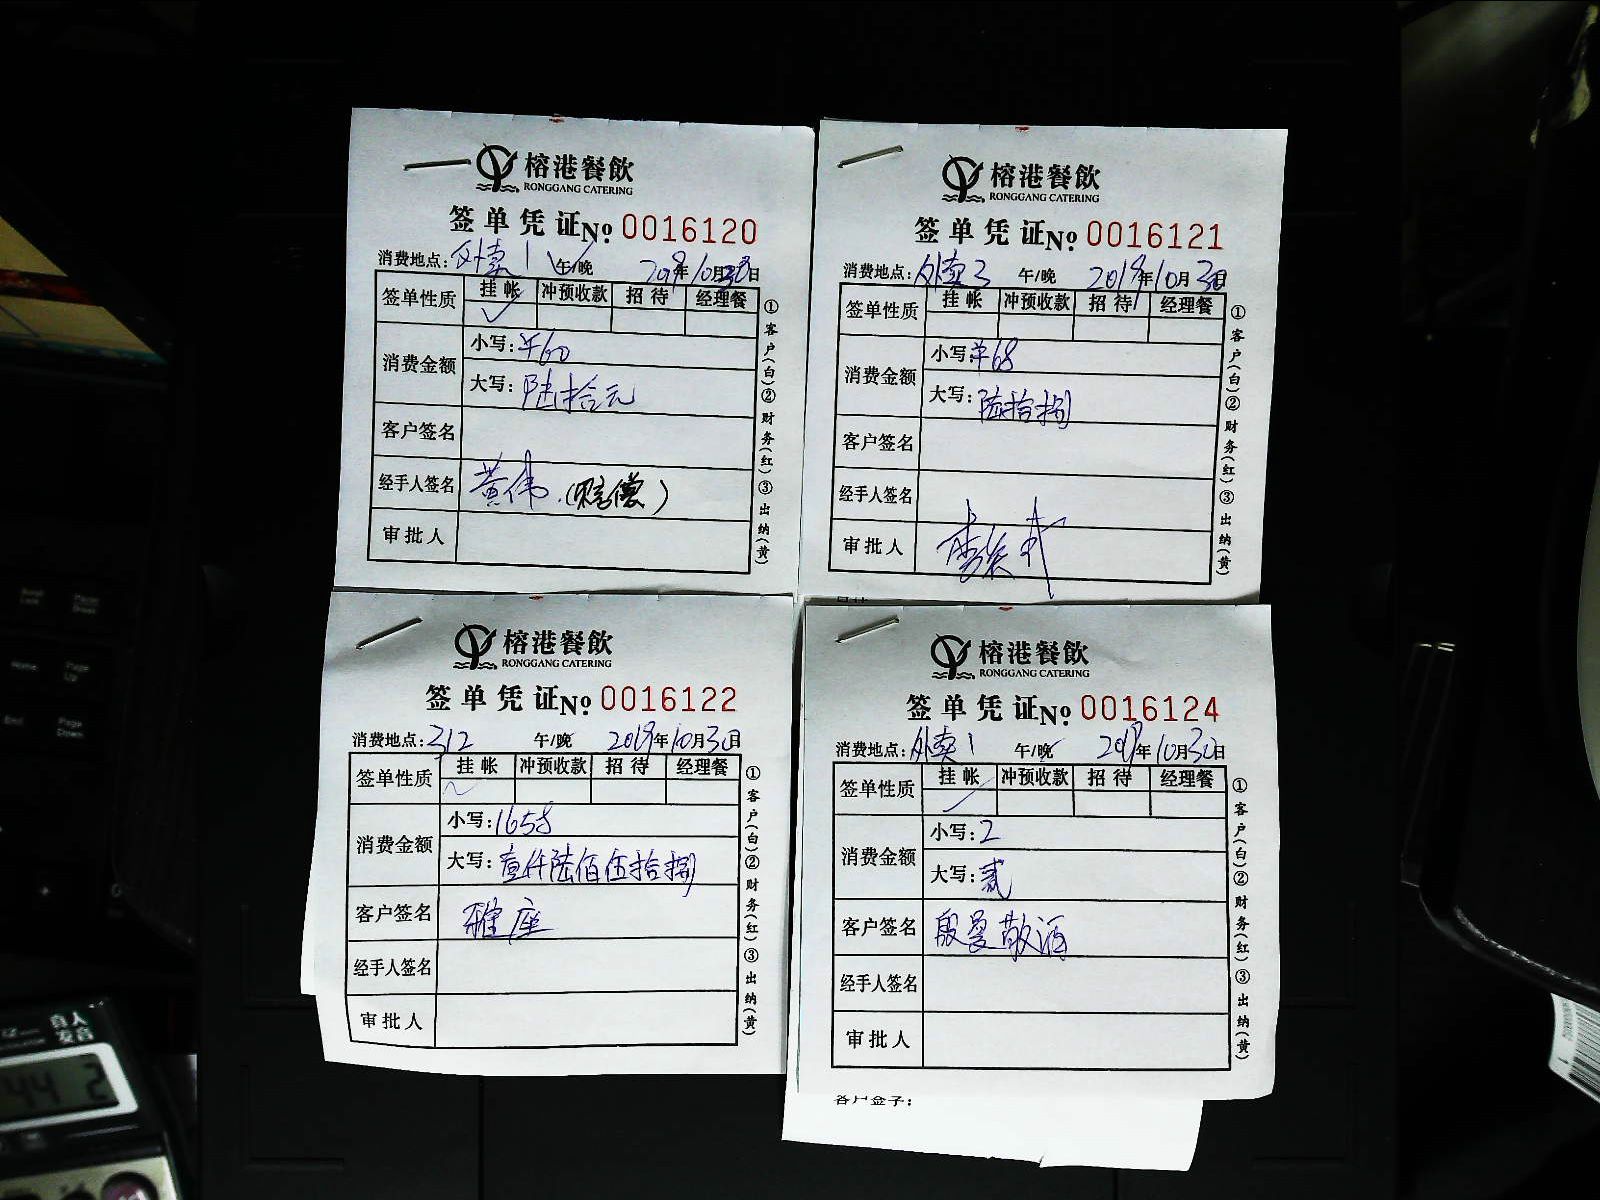 榕港餐飲
RONGGANG CATERING
签单凭证 No. 0016120
消费地点：外卖1 午/晚 2019年10月30日
签单性质 挂帐 冲预收款 招待 经理餐
✓
消费金额 小写：¥60
大写：陆拾元
客户签名
经手人签名 黄伟（赔偿）
审批人
①客户（白）②财务（红）③出纳（黄）
榕港餐飲
RONGGANG CATERING
签单凭证 No. 0016121
消费地点：外卖3 午/晚 2019年10月30日
签单性质 挂帐 冲预收款 招待 经理餐
消费金额 小写：¥68
大写：陆拾捌
客户签名
经手人签名
审批人
①客户（白）②财务（红）③出纳（黄）
榕港餐飲
RONGGANG CATERING
签单凭证 No. 0016122
消费地点：312 午/晚 2019年10月30日
签单性质 挂帐 冲预收款 招待 经理餐
消费金额 小写：1658
大写：壹仟陆佰伍拾捌
客户签名 雅座
经手人签名
审批人
①客户（白）②财务（红）③出纳（黄）
榕港餐飲
RONGGANG CATERING
签单凭证 No. 0016124
消费地点：外卖1 午/晚 2019年10月30日
签单性质 挂帐 冲预收款 招待 经理餐
✓
消费金额 小写：2
大写：贰
客户签名 殷曼敬酒
经手人签名
审批人
①客户（白）②财务（红）③出纳（黄）
真人
发音
44 2
Home
Page Up
End
Page Down